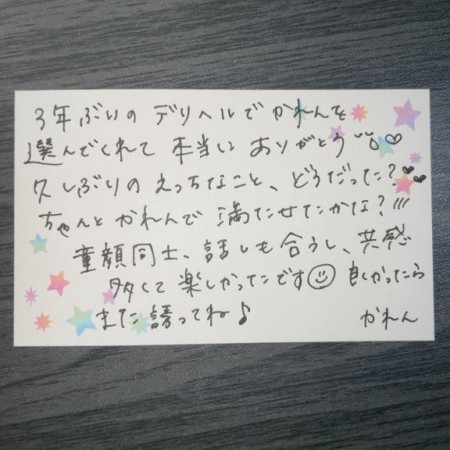 3年ぶりの デリヘルで かれんを
選んでくれて 本当に ありがとう♡
久しぶりのえっちなこと、どうだった?
ちゃんと かれんで 満たせたかな?!!!
童顔同士、話しも合うし、共感
多くて 楽しかったです☺ 良かったら
また誘ってね♪ かれん